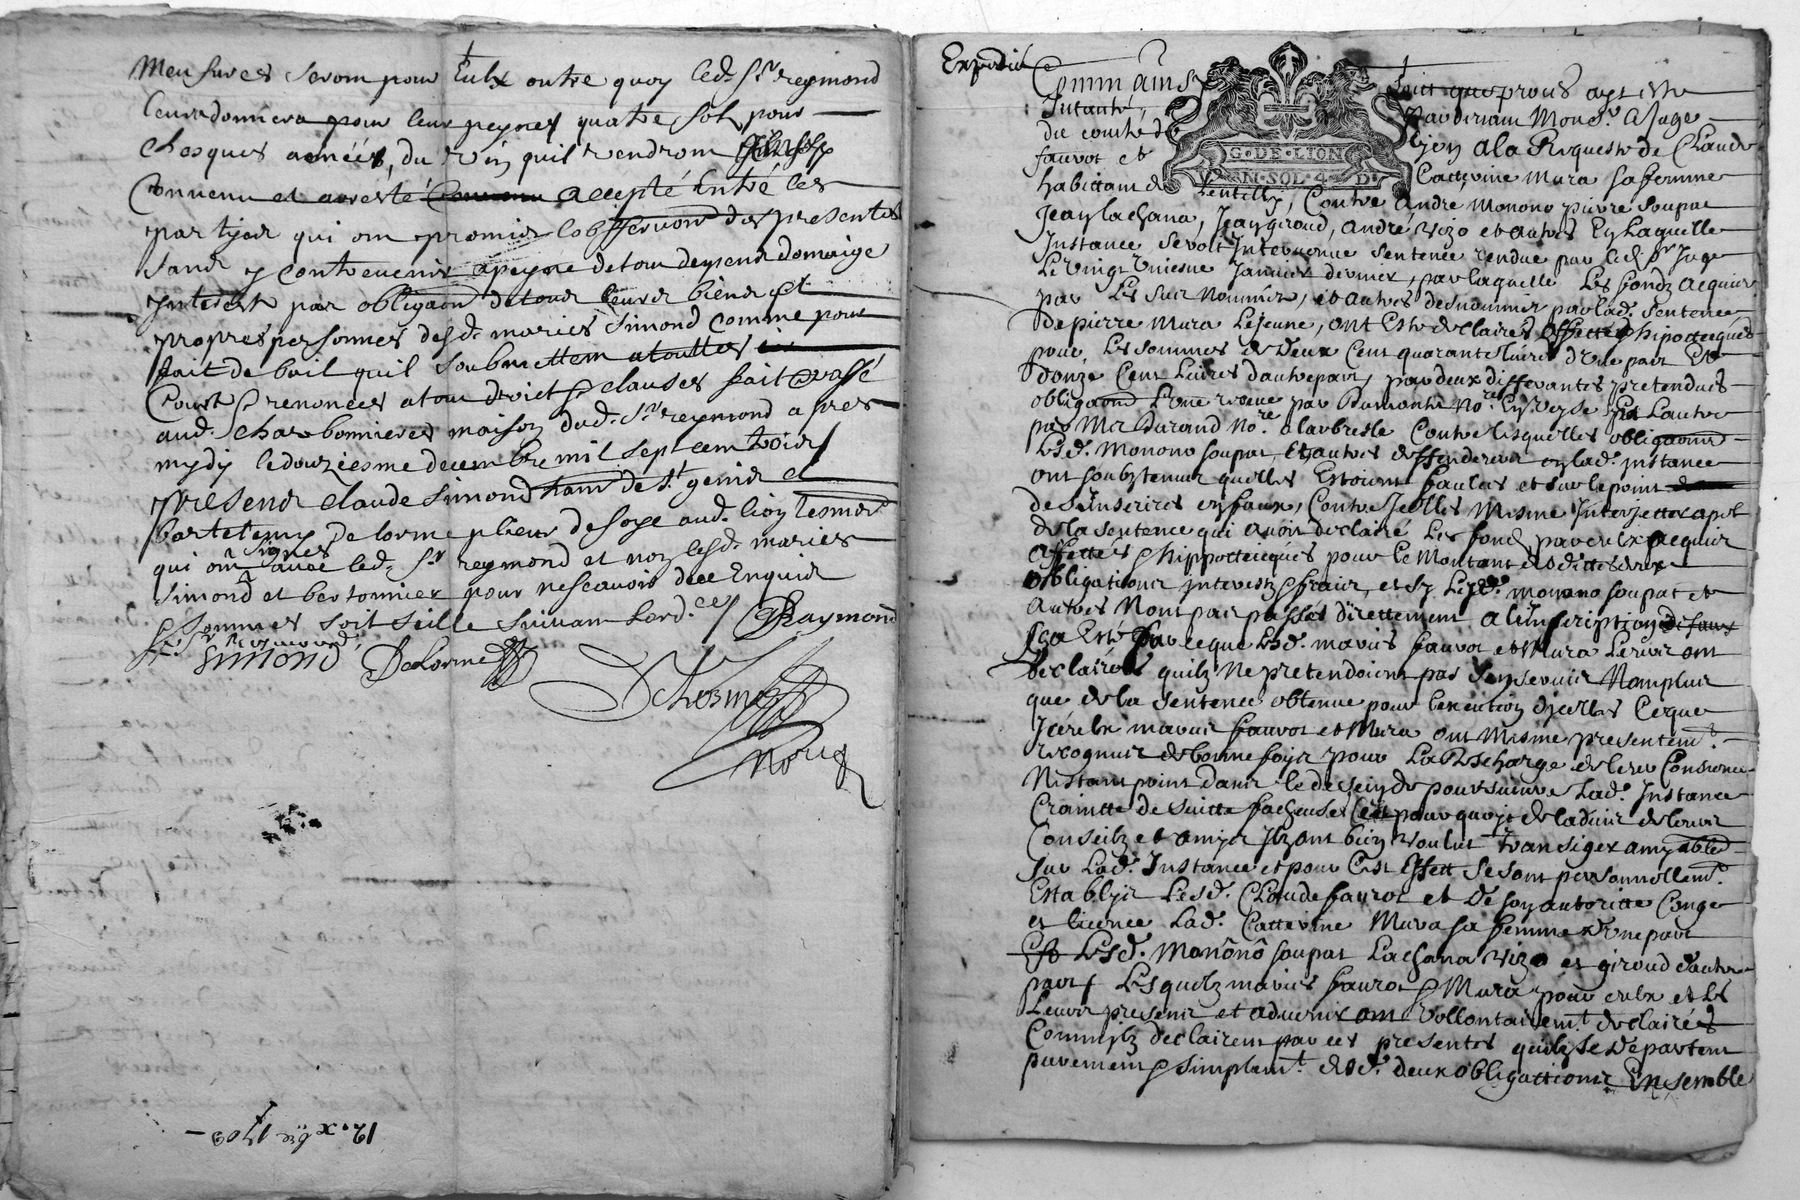 Mesures seront pour Eulx outre quoy led. Sr. reymond
leur donnera pour leur peynes quatre sols pour
chasques année, du vin quil vendront
Convenu et arresté accepté Entre les
partyes qui ont promis lobservaon des presentes
sans y contrevenir a peyne de tous depens domaige
Interest par obligaon de tous leurs biens Et
propres personnes desd. mariés Simond comme pour
fait de bail quil soubmettent a touttes
Court & renoncés a tou droict & clauses fait & passé
aud. charbonnieres maison dud. Sr. reymond apres
mydy le douziesme decembre mil sept cent trois
presens claude Simond hant de St. genis et
bartelemy Delorme plieur de soye aud. lion tesmoins
qui ont signés avec led. Sr. reymond et non lesd. mariés
Simond et bertonnier pour ne scavoir de ce Enquis
& sommés soit seellé suivant lord.ce / Raymond
Simond Delorme
Delorme
Nore
12. xbre 1703
Expedié
Comm ains
Intanté,
du comté d
fauvot et
habittant de
G·DE·LION
SOL·4·D
Soit que proces ayt esté
Pardevant Mons.r le Juge
lyon a la Requeste de Claude
Catterine Mura sa femme
Lentilly, Contre André Monono pierre Soupat
Jean lachana, Jean giroud, André Vizo et autres En laquelle
Instance seroit Intervenue Sentence rendue par led. Sr. Juge
Le vingt uniesme Janvier dernier, par laquelle Les fondz acquis
par Les sus nommés, et autres denommés par lad. Sentence
de pierre Mura Lejeune, ont Esté declairés affettés & hipotteques
pour Les sommes de Deux Cent quarante Livres d'une part Et
douze Cent Livres dautre part, par deux differantes pretendues
obligaons L'une receue par Dumont No.re En Veyse Et Lautre
par Me Durand No.re a larbresle Contre lesquelles obligaons
Lesd. Monono Soupat, Et autres deffendeurs en lad. instance
ont soubztenus quelles Estoient faulces et sur le point
de sinscrire en faux, Contre Icelles Mesme Interjetter apel
de la sentence qui avoit declairé Les fondz par eulx acquis
affettés & hippottecqués pour le Montant desdittes deux
obligations interestz & frais, et Sy Lesd. monono soupat et
Autres Nont pas passés directtement a linscription de faux
Ça Esté Par ce que Lesd. mariés fauvot et Mura Leurs ont
declairés quilz Ne pretendoient pas sen servir Nomplus
que de la Sentence obtenue pour lexecution dicelles Ce que
Iceulx mariés fauvot et Mura ont Mesme presentem.t
recognus de bonne foy pour La Descharge de leur Consience
Nestant point dans le dessein de poursuivre Lad. Instance
Crainte de suitte facheuses Cest pourquoy de ladvis de leurs
Conseilz et amys Ilz ont bien voulut transiger amyablem.t
sur Lad. Instance et pour Cest Effett se sont personnellem.t
Establys Lesd. Claude fauvot et De son autoritte Conge
et licence Lad. Catterine Mura sa femme d'une part
Et Lesd. Monônô soupat Lachana Vizo et giroud dautre
part / Lesquelz mariés fauvot & Mura pour eulx et les
Leurs presens et advenir ont vollontairem.t declairés
Comm'ilz declairent par ces presentes quilz se Départent
purement & simplem.t desd. deux obligattions Ensemble